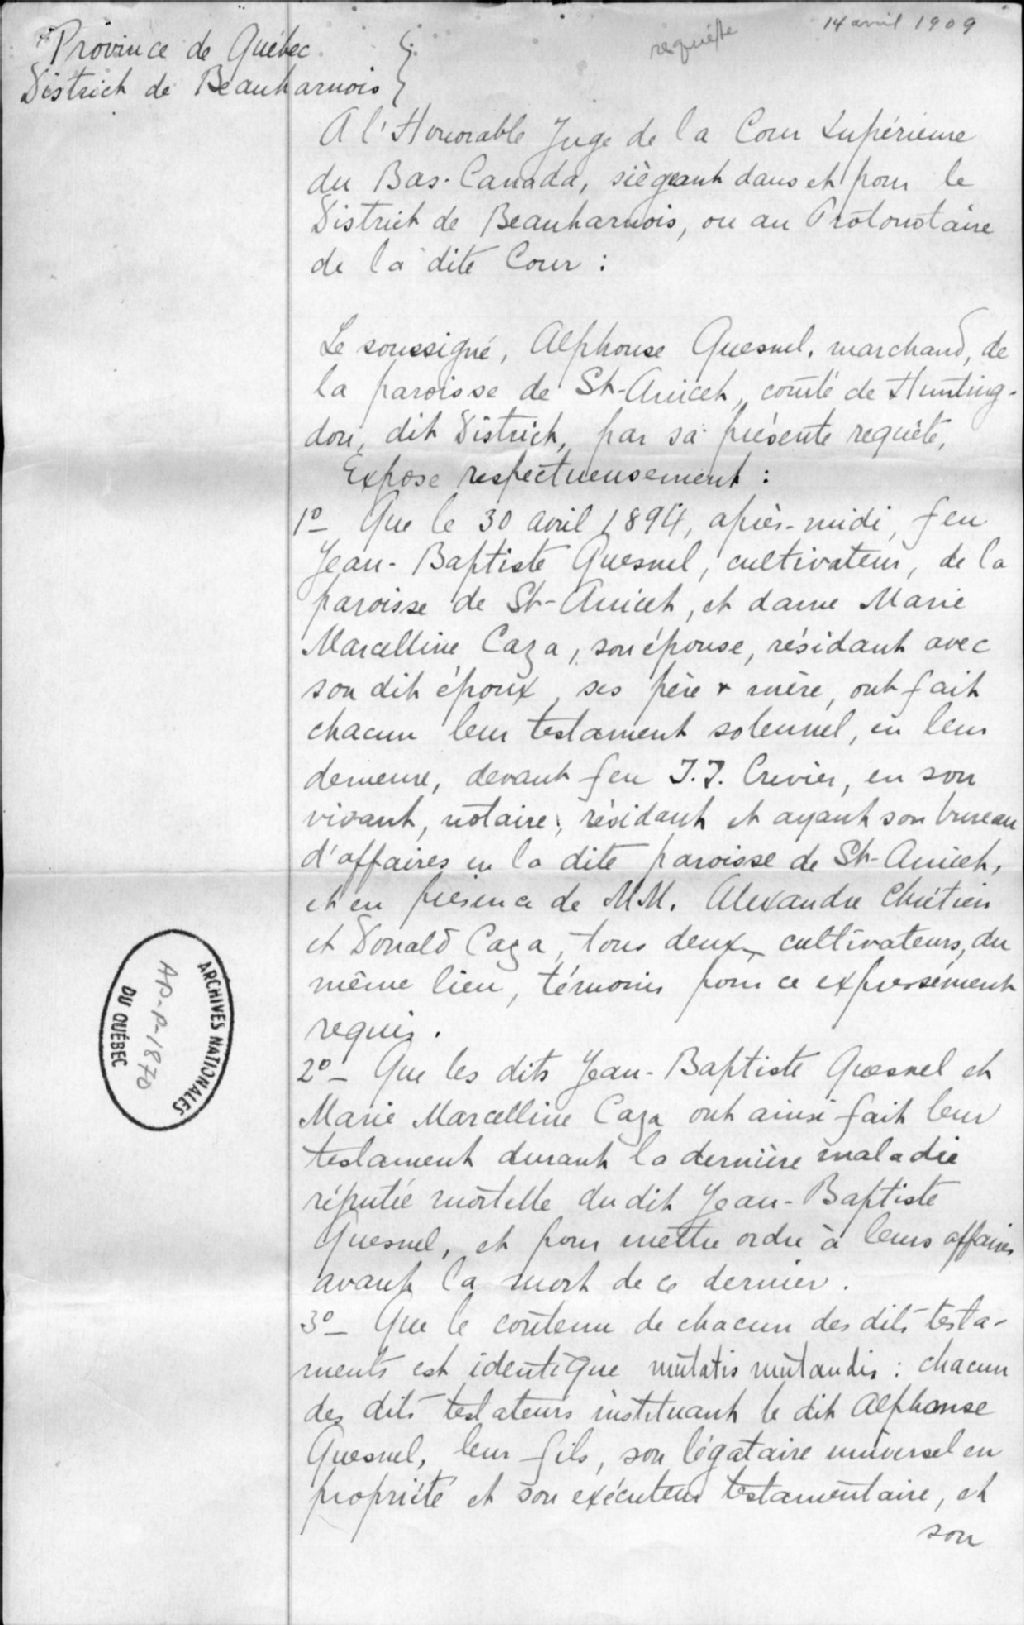 14 avril 1909
requête
Province de Québec
District de Beauharnois
A l'Honorable Juge de la Cour Supérieure
du Bas-Canada, siègeant dans et pour le
District de Beauharnois, ou au Protonotaire
de la dite Cour :
Le soussigné, Alphonse Quesnel, marchand, de
la paroisse de St-Anicet, comté de Hunting-
don, dit District, par sa présente requête,
Expose respectueusement :
1º_ Que le 30 avril 1894, après-midi, feu
Jean-Baptiste Quesnel, cultivateur, de la
paroisse de St-Anicet, et dame Marie
Marcelline Caza, son épouse, résidant avec
son dit époux, ses père & mère, ont fait
chacun leur testament solennel, en leur
demeure, devant feu J.J. Crevier, en son
vivant, notaire, résidant et ayant son bureau
d'affaires en la dite paroisse de St-Anicet,
et en présence de MM. Alexandre Chrétien
et Donald Caza, tous deux cultivateurs, du
même lieu, témoins pour ce expressément
requis.
2º_ Que les dits Jean-Baptiste Quesnel et
Marie Marcelline Caza ont ainsi fait leur
testament durant la dernière maladie
réputée mortelle du dit Jean-Baptiste
Quesnel, et pour mettre ordre à leurs affaires
avant la mort de ce dernier.
3º_ Que le contenu de chacun des dits testa-
ments est identique mutatis mutandis : chacun
des dits testateurs instituant le dit Alphonse
Quesnel, leur fils, son légataire universel en
propriété et son exécuteur testamentaire, et
son
ARCHIVES NATIONALES
AP-P-1870
DU QUÉBEC